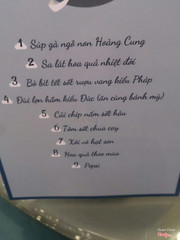 1 Súp gà ngô non Hoàng Cung
2 Sa lát hoa quả nhiệt đới
3 Bò bít tết sốt rượu vang kiểu Pháp
4 Đùi lợn hầm kiểu Đức (ăn cùng bánh mỳ)
5 Cải chíp nấm sốt hàu
6 Tôm sốt chua cay
7 Xôi vò hạt sen
8 Hoa quả theo mùa
9 Pepsi